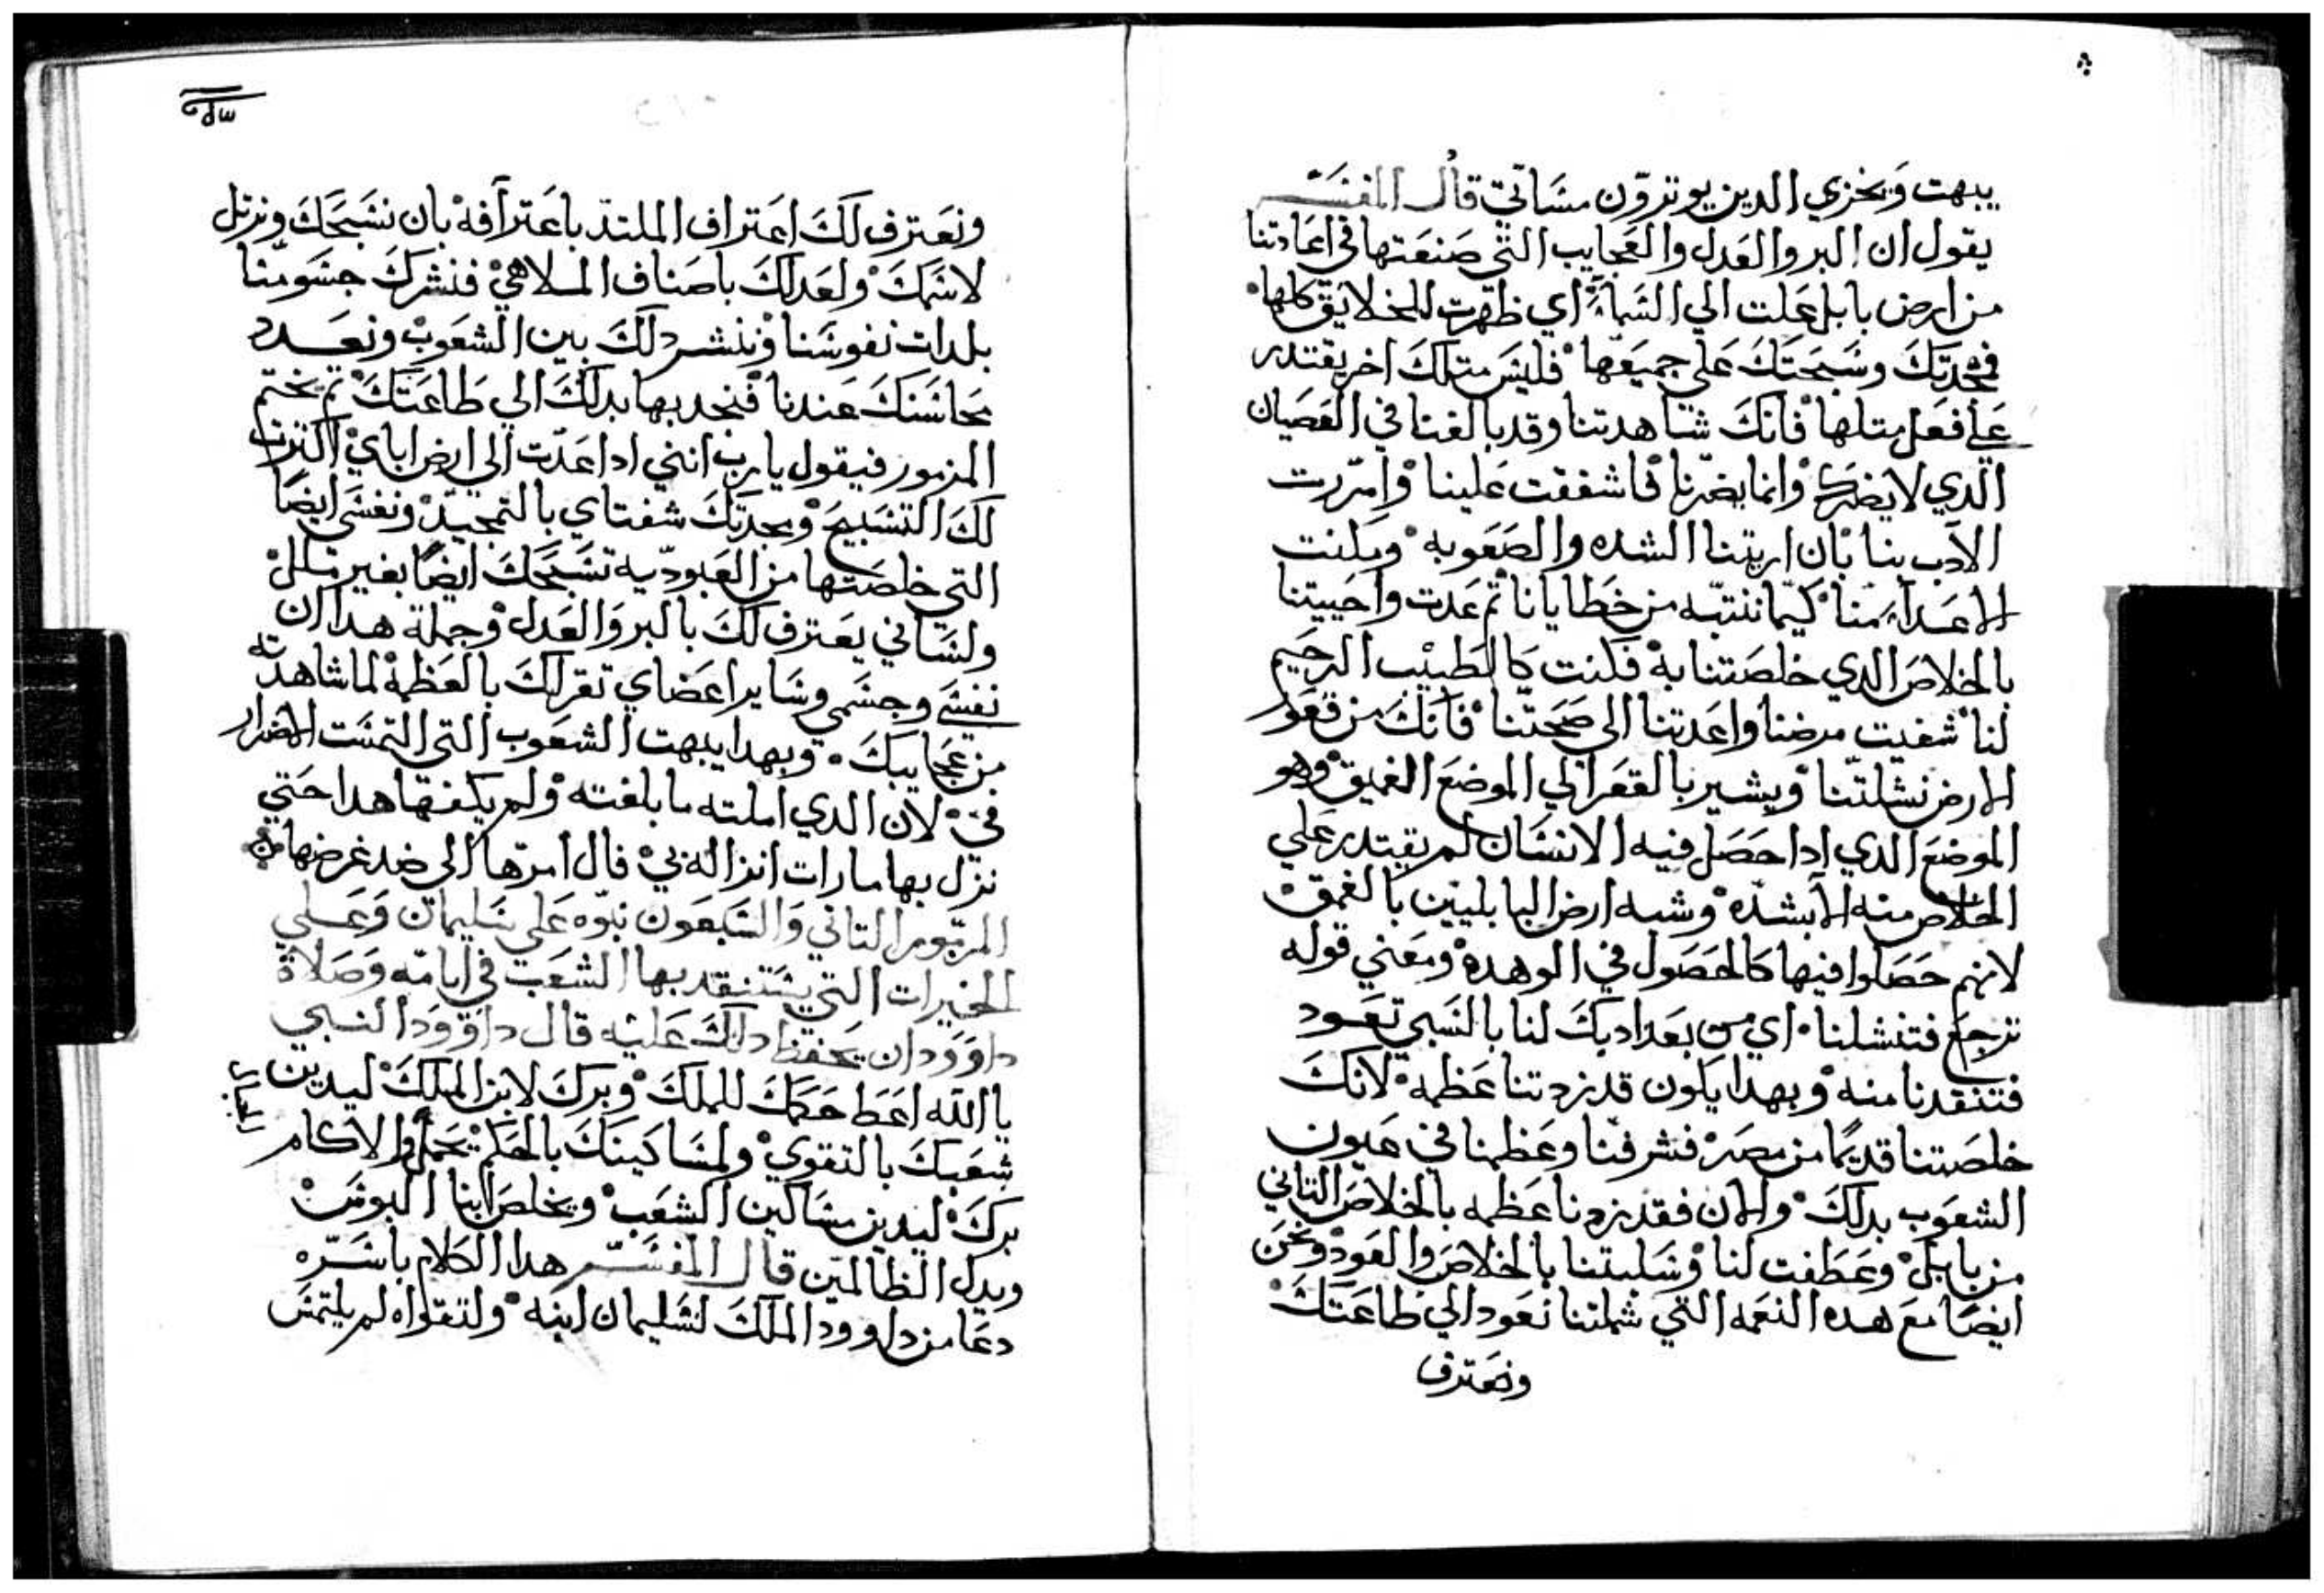 يبهت ويخزي الدين يوتروّن مسَاتي قال المفسَّر
يقول ان البر والعَدل والعَجايب التي صَنعَتها في اعَادتنا
من ارض بابل عَلت الي السَماءَ اي ظهرت للخلايق كلها
فمجدتكَ وسَبحَتكَ عَلي جميعَها فليسَ متلكَ اخر يقتدر
عَلي فعَل متلها فانكَ شاهدتنا وقد بالغنا في العَصيان
الدي لا يضركَ وانما يضرّنا فاشفقت عَلينا وامرّرت
الادب بنا بان اريتنا الشده والصَعَوبه ومكنت
الاعَداء منا كيما ننتبّه من خطايانا تم عَدت واحَييتنا
بالخلاصَ الدي خلصَتنا به فكنت كالطبيب الرحَيم
لنا شفيت مرضنا واعَدتنا الي صَحَتنا فانكَ من قعَور
الارض نشلتنا ويشير بالقعَر الي الموضعَ الغميق وهو
الموضعَ الدي ادا حَصَل فيه الانسَان لم يقتدر عَلي
الخلاص منه الا بشدّه وشبه ارض البابليين بالغمق
لانهم حَصَلوا فيها كالحَصَول في الوهده ومعَني قوله
ترجعَ فتنشلنا اي من بعَد ادبكَ لنا بالسَبي تعَود
فتنقدنا منه وبهدا يكون قد زدتنا عَظمه لانكَ
خلصَتنا قديمًا من مصَر فشرفنا وعَظمنا في عَيون
الشعَوب بدلكَ والان فقد زدنا عَظمه بالخلاصَ التاني
من بابل وعَطفت لنا وسَليتنا بالخلاصَ والعَود ونحَن
ايضَا معَ هده النعَمه التي شملتنا نعَود الي طاعَتكَ
ونعَترف
ونعَترف لكَ اعَتراف الملتدّ باعَترافه بان نسَبحَكَ ونرتل
لاسَمكَ ولعَدلكَ باصَناف الملاهي فنشركَ جسَومنا
بلدات نفوسَنا وننشر دلكَ بين الشعَوب ونعَدد
محَاسَنكَ عَندنا فنجدبها بدلكَ الي طاعَتكَ تم يختم
المزمور فيقول يارب انني ادا عَدت الي ارض اباي اكترت
لكَ التسَبيحَ ومجدتكَ شفتاي بالتمجيد ونفسَي ايضًا
التي خلصَتها من العَبوديّه تسَبحَكَ ايضًا بغير ملل
ولسَاني يعَترف لكَ بالبر والعَدل وجملة هدا ان
نفسَي وجسَمي وسَاير اعَضاي تقر لكَ بالعَظمه لما شاهدته
من عَجايبكَ وبهدا يبهت الشعَوب التي التمسَت الاضرار
في لان الدي املته ما بلغته ولم يكفها هدا حَتي
نزل بها مارات انزاله بي فال امرها الي ضد غرضها
المزمور التاني والسَبعَون نبوّه عَلي سَليمان وعَلي
الخيرات التي يسَتنقد بها الشعَب في ايامه وصَلاة
داوَود ان يحَفظ دلكَ عَليه قال داوَود النبي
يا الله اعَط حَكمكَ للملكَ وبركَ لابن الملكَ ليدين
شعَبكَ بالتقوي ولمسَاكينكَ بالحَكم يحَمل الجبال والاكام
بركَ ليدين مسَاكين الشعَب ويخلصَ ابنا البوسَ
ويدل الظالمين قال المفسَّر هدا الكلام باسَرّه
دعَا من داوود الملكَ لسَليمان ابنه ولتقواه لم يلتمسَ